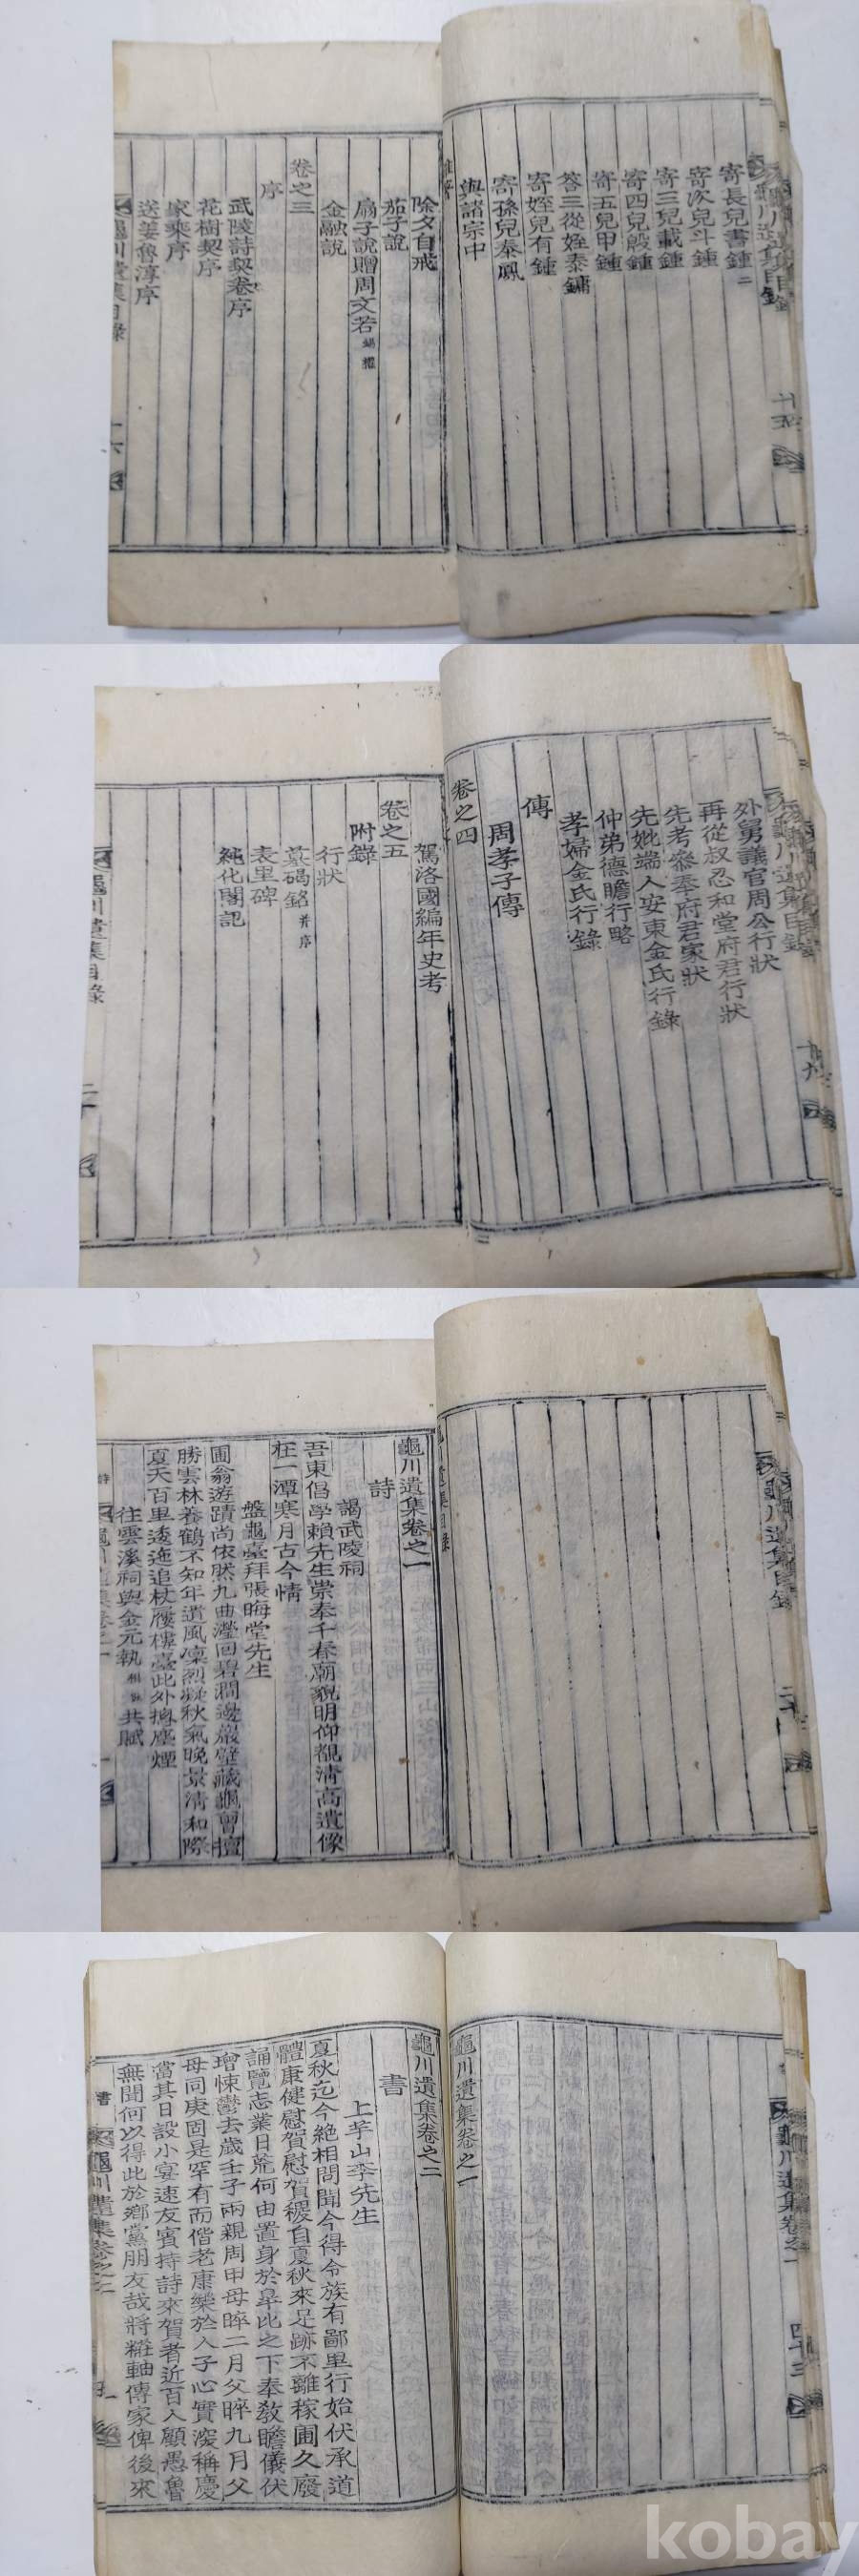 龜川遺集目錄
寄長兒書鍾二
寄次兒斗鍾
寄三兒載鍾
寄四兒殷鍾
寄五兒甲鍾
答三從姪泰鏞
寄姪兒有鍾
寄孫兒泰鳳
與諸宗中
除夕自戒
茄子說
扇子說贈周文若
金融說
卷之三
序
武陵詩契卷序
花樹契序
家乘序
送姜魯淳序
龜川遺集目錄
十六
龜川遺集目錄
外舅議官周公行狀
再從叔忍和堂府君行狀
先考參奉府君家狀
先妣端人安東金氏行錄
仲弟德瞻行略
孝婦金氏行錄
傳
周孝子傳
卷之四
駕洛國編年史考
卷之五
附錄
行狀
墓碣銘并序
表里碑
純化閣記
龜川遺集目錄
二十
龜川遺集目錄
龜川遺集卷之一
詩
謁武陵祠
吾東倡學賴先生崇奉千春廟貌明仰觀淸高遺像
在一潭寒月古今情
盤龜臺拜張晦堂先生
圃翁遊蹟尚依然九曲瀅回碧澗邊巖壁藏龜曾擅
勝雲林養鶴不知年遺風凜烈凝秋氣晚景清和際
夏天百里逶迤追杖屨樓臺此外摠塵煙
往雲溪祠與金元執共賦
詩
龜川遺集卷之一
一
龜川遺集卷之一
四十三
龜川遺集卷之一
龜川遺集卷之二
書
上芋山李先生
夏秋迄今絶相問聞今得令族有鄙里行始伏承道
體康健慰賀慰賀穟自夏秋來足跡不離稼圃久廢
誦覽志業日荒何由置身於皐比之下奉敎瞻儀伏
增悚鬱去歲壬子兩親周甲母晬二月父晬九月父
母同庚固是罕有而偕老康樂於人子心實深稱慶
當其日設小宴速友賓持詩來賀者近百人顧愚魯
無聞何以得此於鄉黨朋友哉將糚軸傳家俾後來
書
龜川遺集卷之二
一
kobay